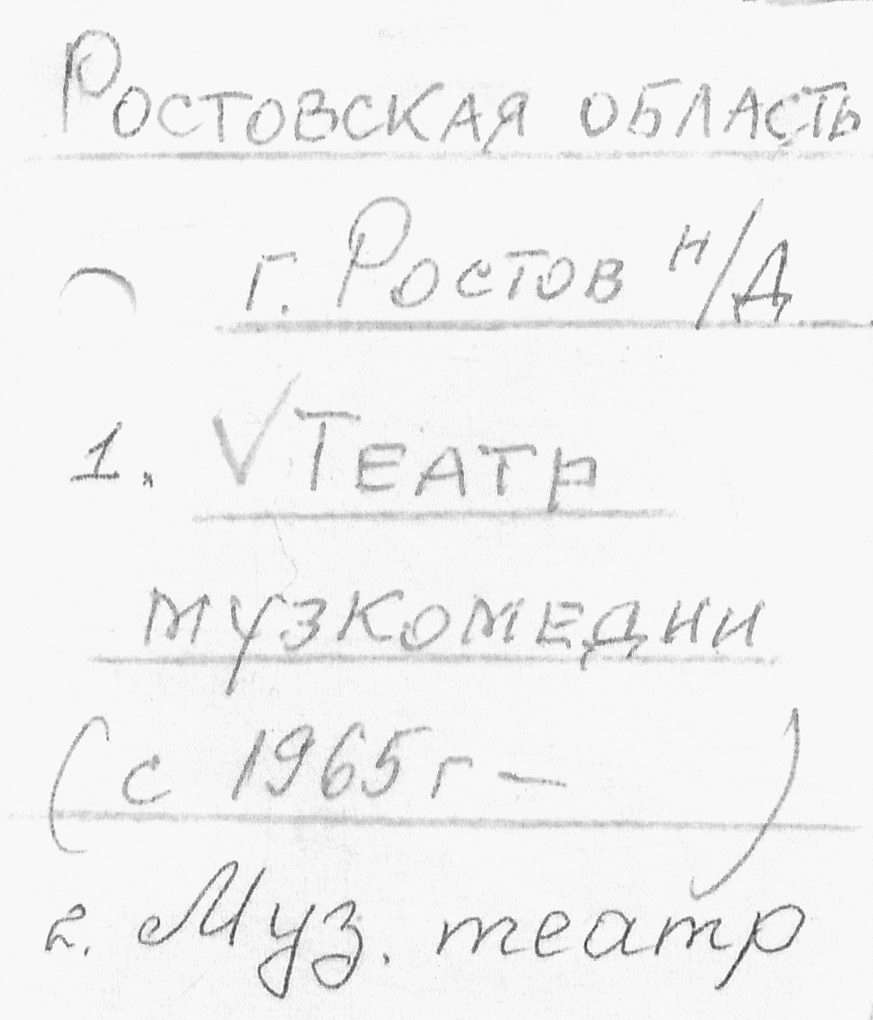 Ростовская область
г. Ростов н/Д
1. √ Театр
музкомедии
(с 1965 г – )
2. Муз. театр